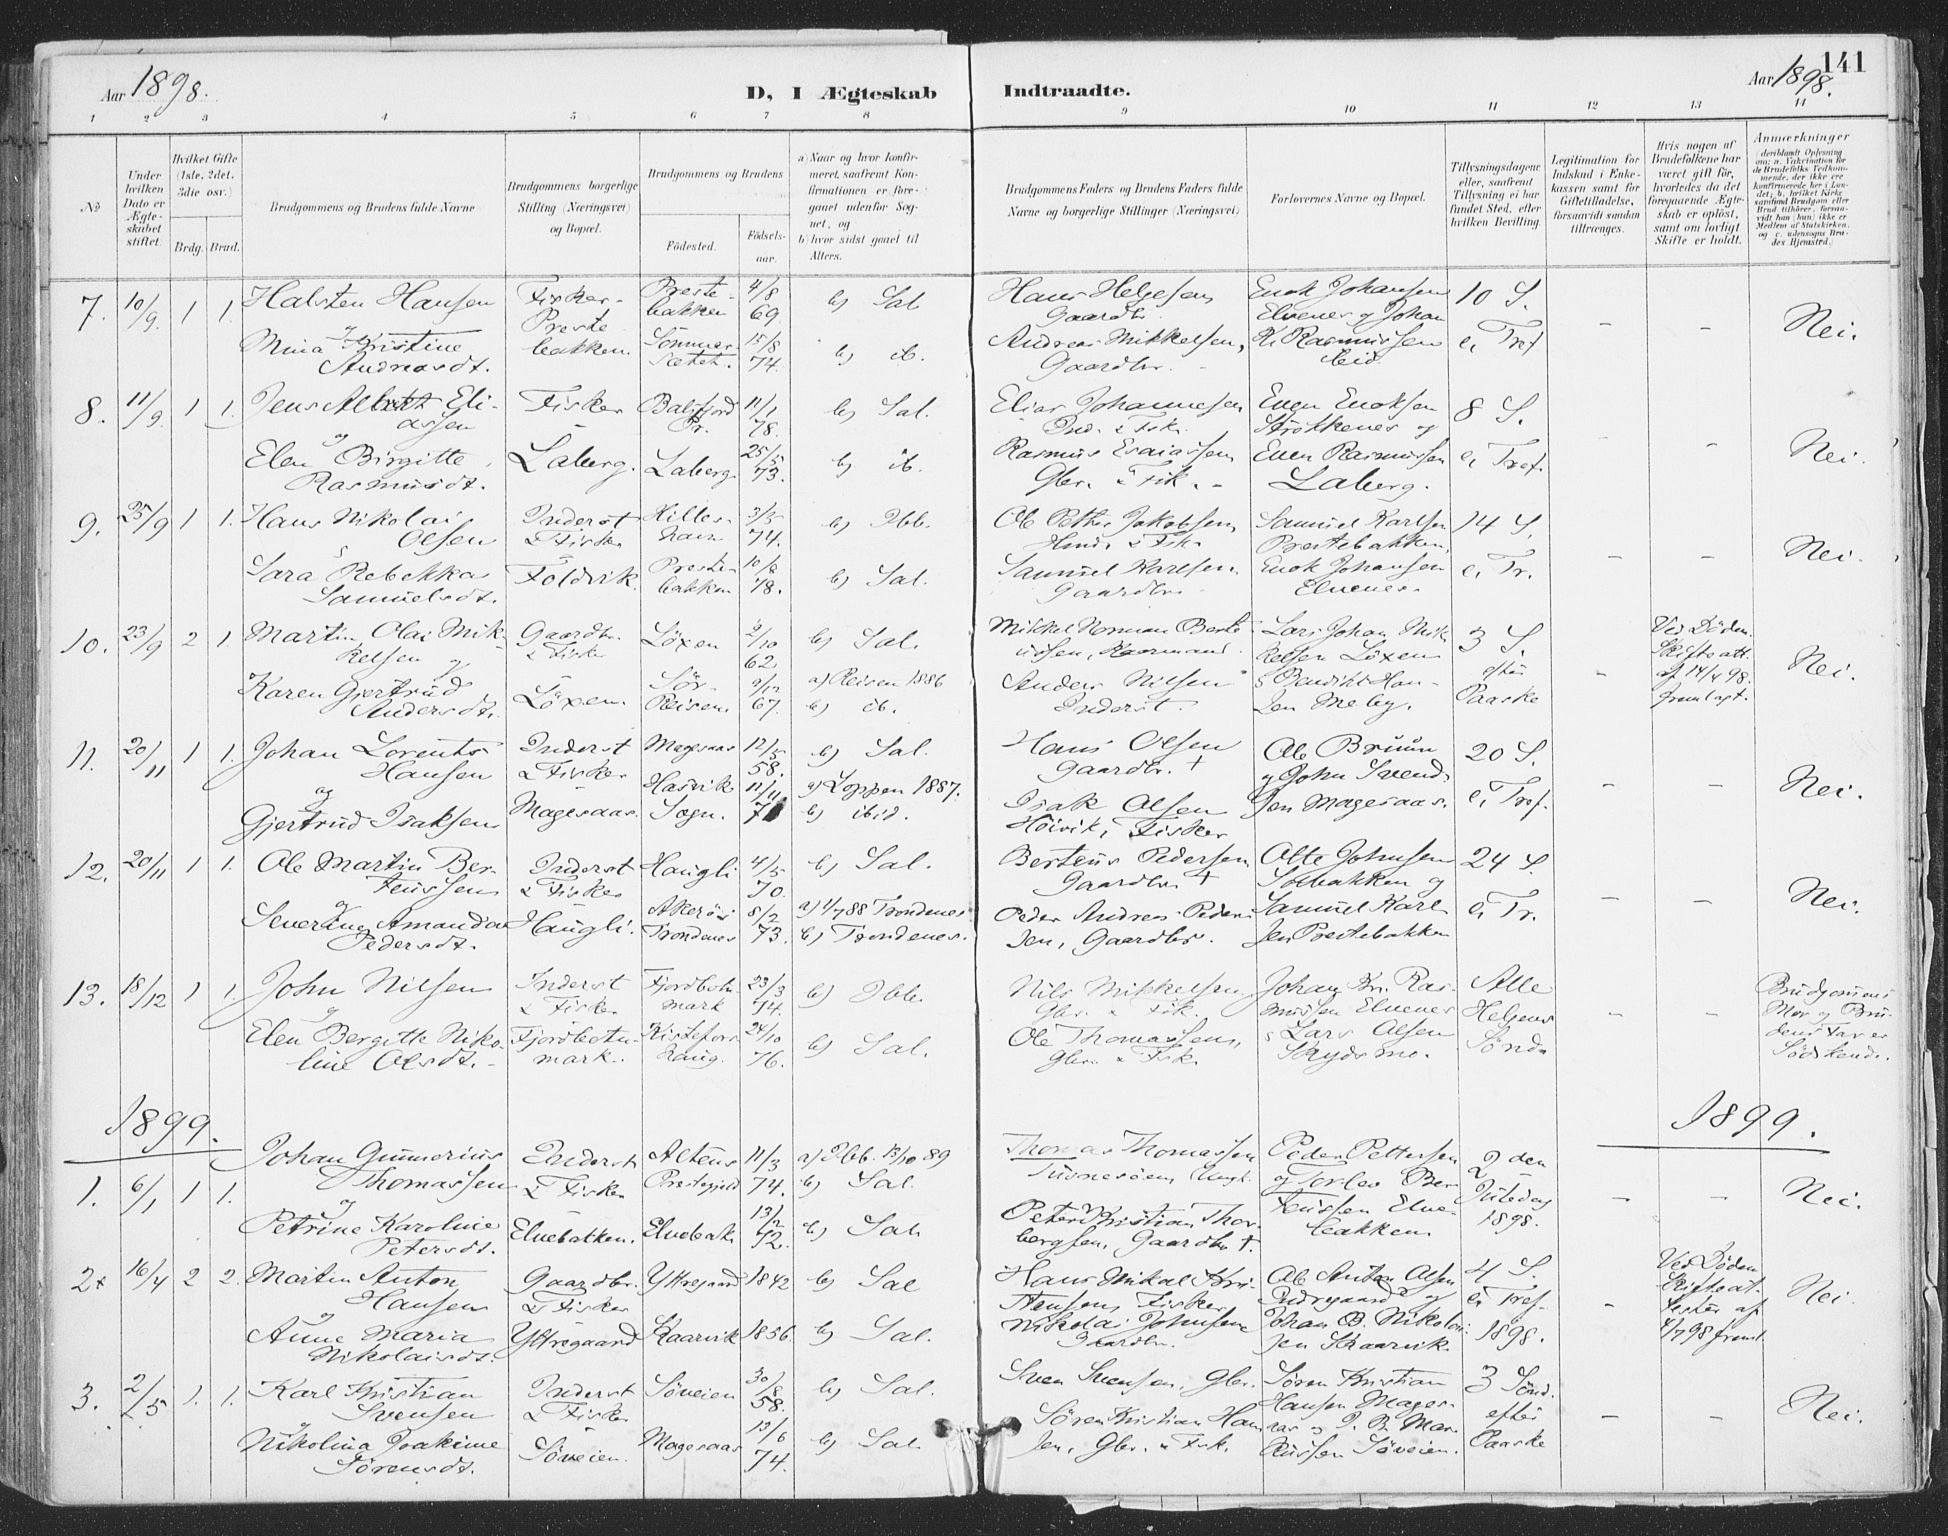 Aar 1898.
D, I Ægteskab Indtraadte.
Aar 1898.
141
1 2 3 4 5 6 7 8 9 10 11 12 13 14
No
Under hvilken Dato er Ægteskabet stiftet.
Hvilket Gifte (1ste, 2det, 3die osv.)
Brdg. Brud.
Brudgommens og Brudens fulde Navne
Brudgommens borgerlige Stilling (Næringsvei) og Bopæl.
Brudgommens og Brudens
Födested. Födselsaar.
a) Naar og hvor Konfirmeret, saafremt Konfirmationen er foregaaet udenfor Sognet, og
b) hvor sidst gaaet til Alters.
Brudgommens Faders og Brudens Faders fulde Navne og borgerlige Stillinger (Næringsvei)
Forlovernes Navne og Bopæl.
Tillysningsdagene eller, saafremt Tillysning ei har fundet Sted, efter hvilken Bevilling.
Legitimation for Indskud i Enkekassen samt for Giftetilladelse, forsaavidt saadan tiltrænges.
Hvis nogen af Brudefolkene har været gift för, hvorledes da det foregaaende Ægteskab er oplöst, samt om lovligt Skifte er holdt.
Anmærkninger
7. 10/9. 1 1. Halsten Hansen Fisker Prestebakken 4/8 69. b) Sal Hans Helgesen Gaardbr. Enok Johansen Elvenes og Johan 10 S. - - Nei.
og Mina Kristine Andreasdt. Prestebakken. Sommersætet. 15/8 74. b) ib. Andreas Mikkelsen, Gaardbr. K. Rasmussen Eid. e. Tref
8. 11/9. 1 1. Jens Albert Eliassen Fisker Balsfjord Pr. 11/1 78. b) Sal. Elias Johannesen Ind. & Fisk. Even Enoksen Strokkenes og 8 S. - - Nei.
og Elen Birgitte Rasmusdt. Laberg. Laberg. 25/5 73. b) ib. Rasmus Esaiassen Gbr. & Fisk. Even Rasmussen Laberg. e. Tref.
9. 25/9 1 1. Hans Nikolai Olsen Inderst & Fisker Hilleshavn 3/5 74. b) Ibb. Ole Petter Jakobsen, & Fisk. Samuel Karlsen Prestebakken, 14 S. - - Nei.
Sara Rebekka Samuelsdt. Foldvik. Prestebakken 10/8 78. b) Sal. Samuel Karlsen. Gaardbr. Enok Johansen Elvenes. e. Tr.
10. 23/9 2 1. Martin Olai Mikkelsen og Gaardbr. & Fisker Löxen 2/10 62 b) Sal. Mikkel Norman Lars Johan Mikkelsen Löxen 3 S. efter Paaske - Ved Döden. Skifteatt. af 14/4 98. fremlagt. Nei.
Karen Gjertrud Andersdt. Löxen. Sör-Reisen. 9/12 67. a) Reisen 1886 b) ib. Anders Nilsen Inderst. & Benedikt Hansen Meby.
11. 20/11 1 1. Johan Lorents Hansen Inderst & Fisker Magesaas 12/5 58. b) Sal. Hans Olsen Gaardbr. + Ole Bruun og John Svendsen Magesaas. 20 S. - - Nei.
og Gjertrud Isaksen Magesaas. Hasvik Sogn. 11/11 a) Loppen 1887. b) ibid. Isak Olsen Fisker e. Tref.
12. 20/11 1 1. Ole Martin Berteussen Inderst & Fisker Haugli 4/5 70. b) Sal. Berteus Pedersen Gaardbr. + Johnsen Solbakken og 24 S. - - Nei.
og Severine Amanda Pedersdt. Haugli. Trondenes 8/2 73. a) 1/7 88 Trondenes b) Trondenes. Peder Andreas Pedersen, Gaardbr. Samuel Karlsen Prestebakken e. Tr.
13. 18/12 1 1. John Nilsen Inderst & Fisker Fjordbotnmark 23/3 74. b) Ibb. Nils Mikkelsen Gbr. & Fisk. Johan Kr. Rasmussen Elvenes Alle Helgens Sönd. - - Brudgomens Mor og Brudens Far er Södskend.
og Elen Bergitte Nikoline Olsdt. Fjordbotnmark. 24/10 76. b) Sal. Ole Thomassen, Gbr. & Fisk. & Lars Olsen Skydsmo.
1899. 1899.
1. 6/1 1 1. Johan Gunnerius Thomassen Inderst & Fisker Altens Prestegjeld 11/3 74. a) Ibb. 13/10 89 b) Sal. Thomas Thomassen Ungk. Peder Pettersen og Torlev Berteussen Elvebakken 2den Juledag 1898. - - Nei.
og Petrine Karoline Petersdt. Elvebakken. Elvebak. 13/12 72. b) Sal. Peter Kristian Thorbergsen, Gaardbr. +.
2. 16/4 2 2. Martin Anton Hansen Gaardbr. & Fisker Yttregaard 1842 b) Sal Hans Mikal Kristensen, Fisker Ole Anton Olsen Indregaard og 4 S. e. Tref. 1898. - Ved Döden Skifteattester af 4/7 98 freml. Nei
og Anne Maria Nikolaisdt. Yttregaard Skaarvik 1856. b) Sal. Nikolai Johnsen Gaardbr. Johan B. Nikolaisen Skaarvik.
3. 2/5 1. 1. Karl Kristian Svensen Inderst & Fisker Söveien 30/8 58. b) Sal. Sven Svensen. Gbr. Sören Kristian Hansen Magesaas og J. B. Markussen Söveien. 3 Sönd. efter Paaske - - Nei.
og Nikolina Joakime Sörensdt. Söveien. Magesaas 13/6 74. b) Sal. Sören Kristian Hansen, Gbr. & Fisk.